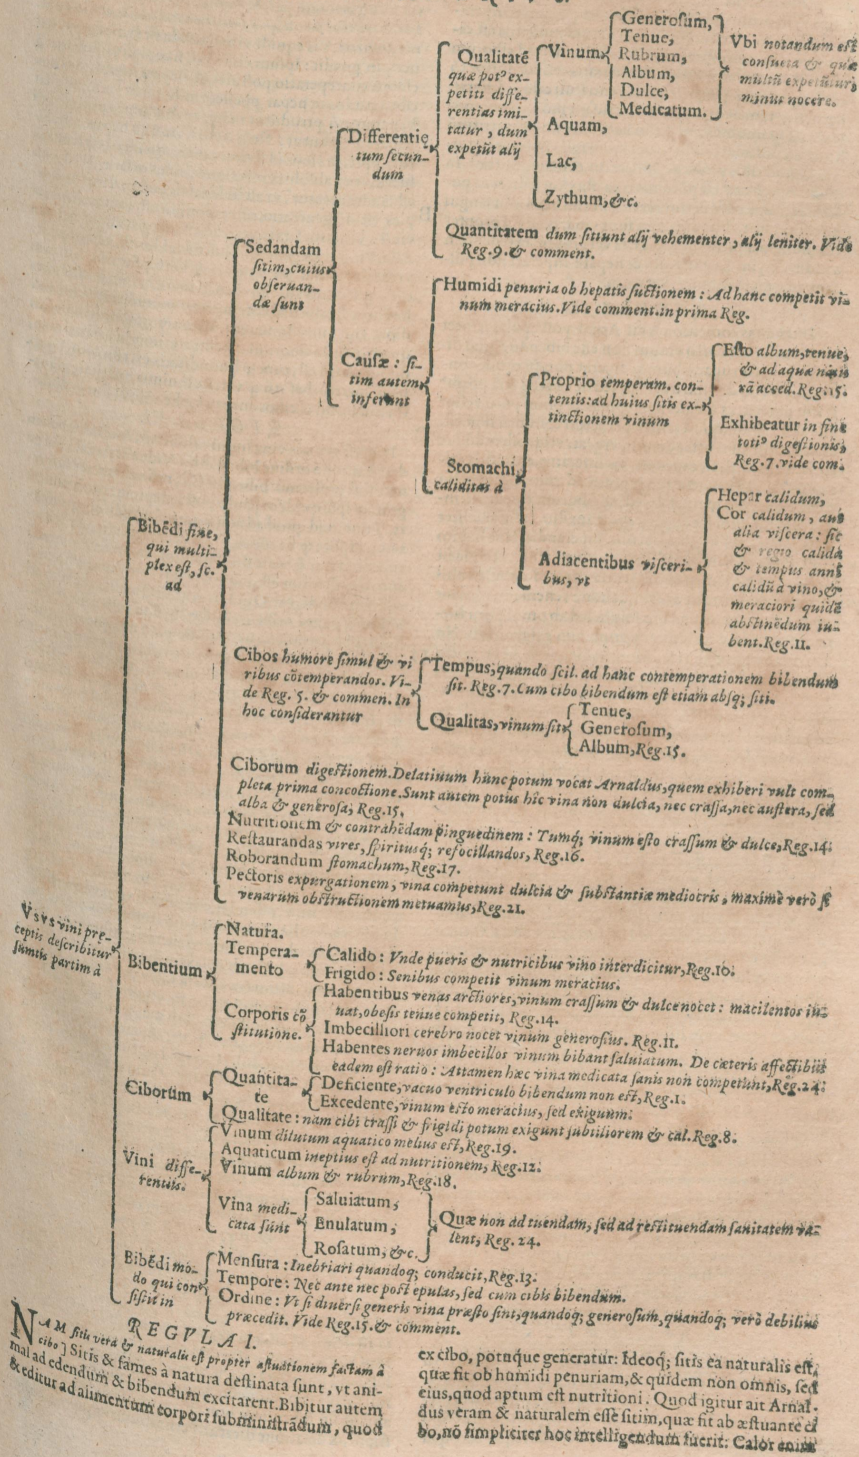 Generosum,
Tenue,
Rubrum,
Album,
Dulce,
Medicatum.
Vbi notandum est
consueta & quæ
multũ expetũtur,
minus nocere.
Qualitatẽ
quæ potꝰ ex-
petiti diffe-
rentias imi-
tatur, dum
expetũt alij
Vinum
Aquam,
Lac,
Zythum, &c.
Differentię
tum secun-
dum
Quantitatem dum sitiunt alij vehementer, alij leniter. Vide
Reg. 9. & comment.
Sedandam
sitim, cuius
obseruan-
dæ sunt
Humidi penuria ob hepatis suctionem: Ad hanc competit vi-
num meracius. Vide comment. in prima Reg.
Causæ: si-
tim autem
inferunt
Proprio temperam. con-
tentis: ad huius sitis ex-
tinctionem vinum
Esto album, tenue,
& ad aquæ
rã acced. Reg. 15.
Exhibeatur in fine
totiꝰ digestionis,
Reg. 7. vide com.
Stomachi
caliditas à
Adiacentibus visceri-
bus, vt
Hepar calidum,
Cor calidum, aut
alia viscera: sic
& regio calida
& tempus anni
calidũ à vino, &
meraciori quidẽ
abstinẽdum iu-
bent. Reg. 11.
Bibẽdi fine,
qui multi-
plex est, sc.
ad
Cibos humore simul & vi
ribus cõtemperandos. Vi-
de Reg. 5. & commen. In
hoc considerantur
Tempus, quando scil. ad hanc contemperationem bibendum
sit. Reg. 7. Cum cibo bibendum est etiam absq; siti.
Qualitas, vinum sit
Tenue,
Generosum,
Album, Reg. 15.
Ciborum digestionem. Delatiuum hunc potum vocat Arnaldus, quem exhiberi vult com-
pleta prima concoctione. Sunt autem potus hic vina non dulcia, nec crassa, nec austera, sed
alba & generosa, Reg. 15.
Nutritionem & contrahẽdam pinguedinem: Tumq; vinum esto crassum & dulce, Reg. 14.
Restaurandas vires, spiritusq; refocillandos, Reg. 16.
Roborandum stomachum, Reg. 17.
Pectoris expurgationem, vina competunt dulcia & substantiæ mediocris, maximè verò si
venarum obstructionem metuamus, Reg. 21.
Vsus vini præ-
ceptis describitur
sumtis partim à
Bibentium
Natura.
Tempera-
mento
Calido: Vnde pueris & nutricibus vino interdicitur, Reg. 10.
Frigido: Senibus competit vinum meracius.
Corporis cõ
stitutione.
Habentibus venas arctiores, vinum crassum & dulce nocet: macilentos iu-
uat, obesis tenue competit, Reg. 14.
Imbecilliori cerebro nocet vinum generosius. Reg. 11.
Habentes neruos imbecillos vinum bibant saluiatum. De cæteris affectibus
eadem est ratio: Attamen hæc vina medicata sanis non competunt, Reg. 24.
Ciborum
Quantita-
te
Deficiente, vacuo ventriculo bibendum non est, Reg. 1.
Excedente, vinum esto meracius, sed exiguum.
Qualitate: nam cibi crassi & frigidi potum exigunt subtiliorem & cal. Reg. 8.
Vini diffe-
rentiis.
Vinum dilutum aquatico melius est, Reg. 19.
Aquaticum ineptius est ad nutritionem, Reg. 12.
Vinum album & rubrum, Reg. 18.
Vina medi-
cata sunt
Saluiatum,
Enulatum,
Rosatum, &c.
Quæ non ad tuendam, sed ad restituendam sanitatem va-
lent, Reg. 24.
Bibẽdi mo-
do qui con-
sistit in
Mensura: Inebriari quandoq; conducit, Reg. 13.
Tempore: Nec ante nec post epulas, sed cum cibis bibendum.
Ordine: Vt si diuersi generis vina præsto sint, quandoq; generosum, quandoq; verò debilius
præcedit. Vide Reg. 15. & comment.
REGVLA I.
NAM sitis vera & naturalis est propter æstuationem factam à
cibo] Sitis & fames à natura destinata sunt, vt ani-
mal ad edendum & bibendum excitarent. Bibitur autem
& editur ad alimentum corpori subministrãdum, quod
ex cibo, potuque generatur: Ideoq; sitis ea naturalis est,
quæ fit ob humidi penuriam, & quidem non omnis, sed
eius, quod aptum est nutritioni. Quod igitur ait Arnal-
dus veram & naturalem esse sitim, quæ fit ab æstuante ci
bo, nõ simpliciter hoc intelligendum fuerit: Calor enim